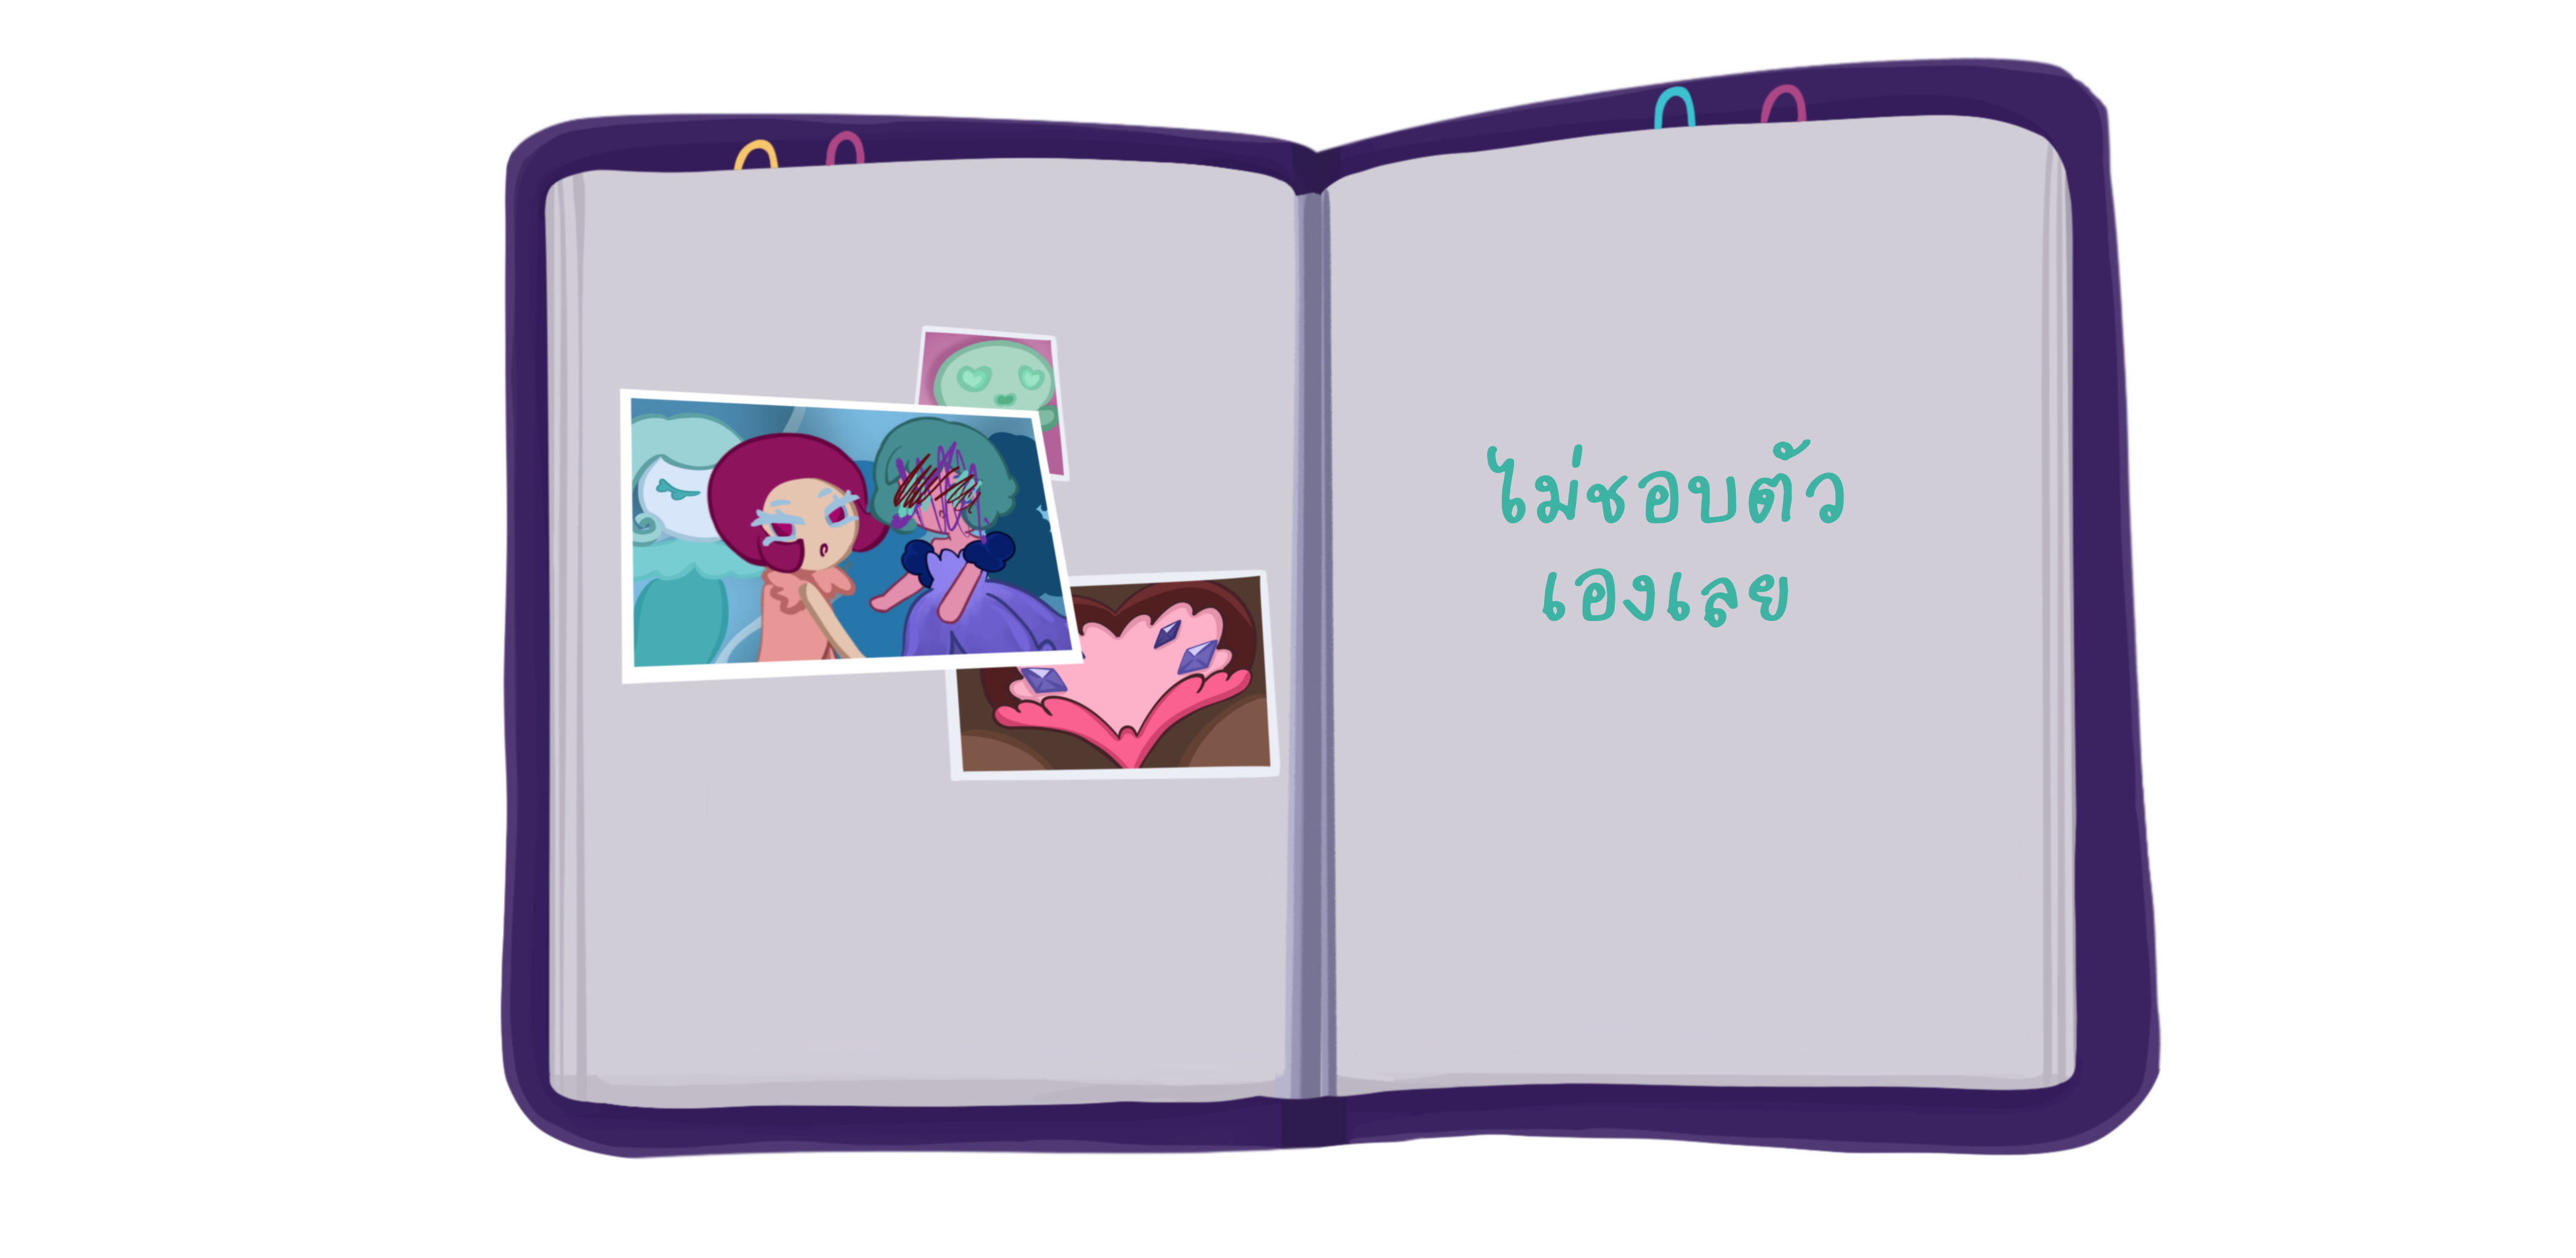 ไม่ชอบตัว
เองเลย